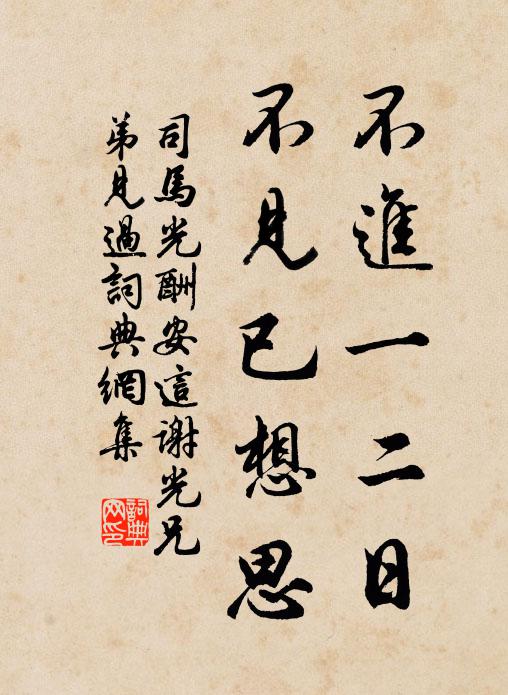 不進一二日
不見已想思
司馬光酬安這謝光兄
弟見過詞典網集
詞典網印